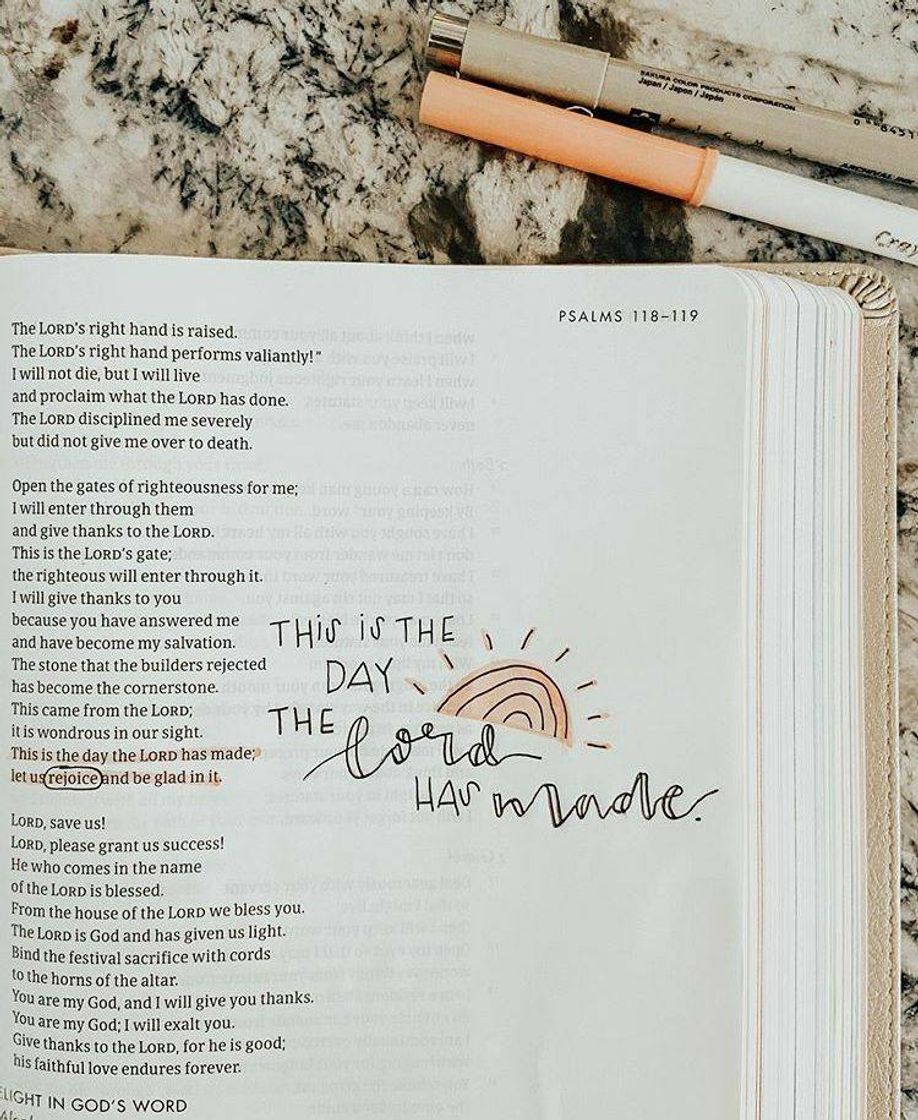 SAKURA COLOR PRODUCTS CORPORATION
Japan / Japon / Japón
PIGMA
Cray
PSALMS 118–119
The LORD's right hand is raised.
The LORD's right hand performs valiantly!"
I will not die, but I will live
and proclaim what the LORD has done.
The LORD disciplined me severely
but did not give me over to death.
Open the gates of righteousness for me;
I will enter through them
and give thanks to the LORD.
This is the LORD's gate;
the righteous will enter through it.
I will give thanks to you
because you have answered me
and have become my salvation.
The stone that the builders rejected
has become the cornerstone.
This came from the LORD;
it is wondrous in our sight.
This is the day the LORD has made;
let us rejoice and be glad in it.
LORD, save us!
LORD, please grant us success!
He who comes in the name
of the LORD is blessed.
From the house of the LORD we bless you.
The LORD is God and has given us light.
Bind the festival sacrifice with cords
to the horns of the altar.
You are my God, and I will give you thanks.
You are my God; I will exalt you.
Give thanks to the LORD, for he is good;
his faithful love endures forever.
ELIGHT IN GOD'S WORD
THIS IS THE
DAY
THE lord
HAS made.